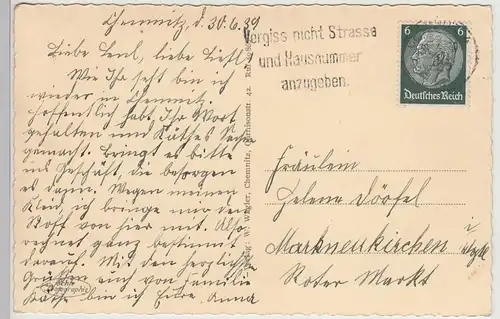 Chemnitz, d. 30.6.39
Liebe Leni, liebe Liesl!
Wie Ihr seht bin ich
wieder in Chemnitz.
Hoffentlich habt Ihr Wort
gehalten und Käthes Sache
gemacht. Bringt es bitte
ins Geschäft, die besorgen
es dann. Wegen meinen
Kleid, ich bringe mir den
Stoff von hier mit. Also
rechnet ganz bestimmt
darauf. Mit den herzlichsten
Grüßen auch von Familie
Käthe bin ich Eure Anna
Echte
Photographie
Verlag W. Wagler, Chemnitz, 42.
Vergiss nicht Strasse
und Hausnummer
anzugeben.
6 6
Deutsches Reich
Fräulein
Helene Dörfel
Markneukirchen i/Vogtl.
Roter Markt